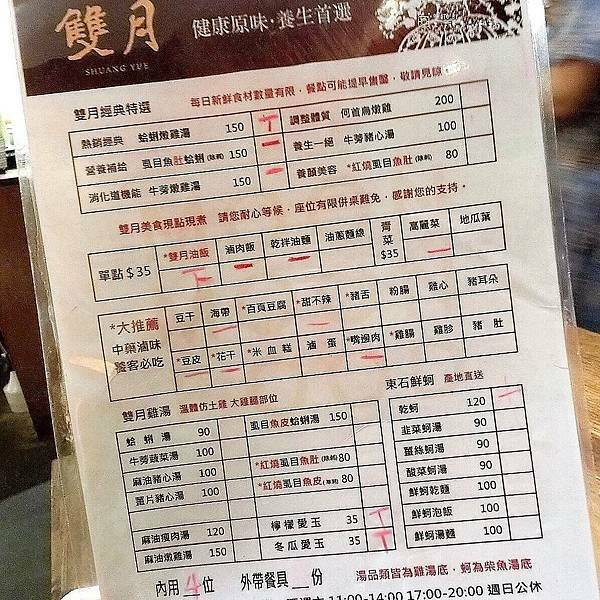 雙月
SHUANG YUE
健康原味·養生首選
雙月經典特選 每日新鮮食材數量有限,餐點可能提早售罄,敬請見諒。
熱銷經典 蛤蜊燉雞湯 150 調整體質 何首烏燉雞 200
營養補給 虱目魚肚蛤蜊(除刺) 150 養生一絕 牛蒡豬心湯 100
消化道機能 牛蒡燉雞湯 150 養顏美容 *紅燒虱目魚肚(除刺) 80
雙月美食現點現煮 請您耐心等候,座位有限併桌難免,感謝您的支持。
單點$35 *雙月油飯 滷肉飯 乾拌油麵 油蔥麵線 菁菜$35 高麗菜 地瓜葉
*大推薦 豆干 海帶 *百頁豆腐 *甜不辣 *豬舌 粉腸 雞心 豬耳朵
中藥滷味
饕客必吃 *豆皮 *花干 *米血糕 滷蛋 *嘴邊肉 *雞腸 雞胗 豬肚
雙月雞湯 溫體仿土雞 大雞腿部位 東石鮮蚵 產地直送
蛤蜊湯 90 虱目魚皮蛤蜊湯 150 乾蚵 120
牛蒡蔬菜湯 100 韭菜蚵湯 90
麻油豬心湯 100 *紅燒虱目魚肚(除刺) 80 薑絲蚵湯 90
薑片豬心湯 100 *紅燒虱目魚皮(除刺) 80 酸菜蚵湯 90
鮮蚵乾麵 100
麻油瘦肉湯 120 檸檬愛玉 35 鮮蚵泡飯 100
麻油燉雞湯 150 冬瓜愛玉 35 鮮蚵湯麵 100
內用 4 位 外帶餐具 __份 湯品類皆為雞湯底,蚵為柴魚湯底
11:00-14:00 17:00-20:00 週日公休